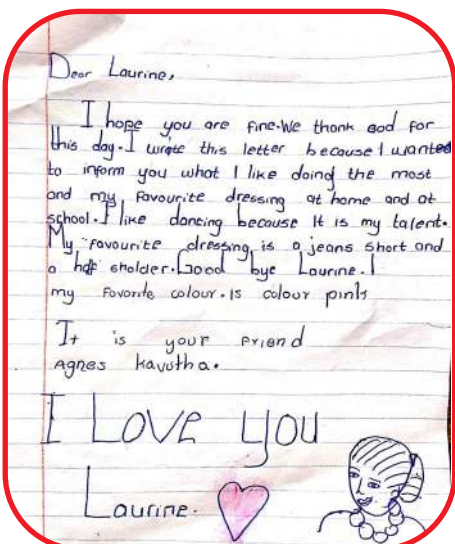 Dear Laurine,
I hope you are fine. We thank God for
this day. I wrote this letter because I wanted
to inform you what I like doing the most
and my favourite dressing at home and at
school. I like dancing because It is my talent.
My favourite dressing is a jeans short and
a half sholder. Good bye Laurine. I
my favorite colour. is colour pink
It is your Friend
Agnes Kavutha.
I Love you
Laurine.